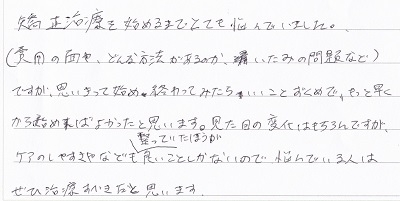 矯正治療を始めるまでとても悩んでいました。
(費用の面や、どんな方法があるのか、いたみの問題など)
ですが、思いきって始め、終わってみたらいいことずくめで、もっと早く
から始めればよかったと思います。見た目の変化はもちろんですが、
整っていたほうが
ケアのしやすさなども良いことしかないので悩んでいる人は
ぜひ治療すべきだと思います。